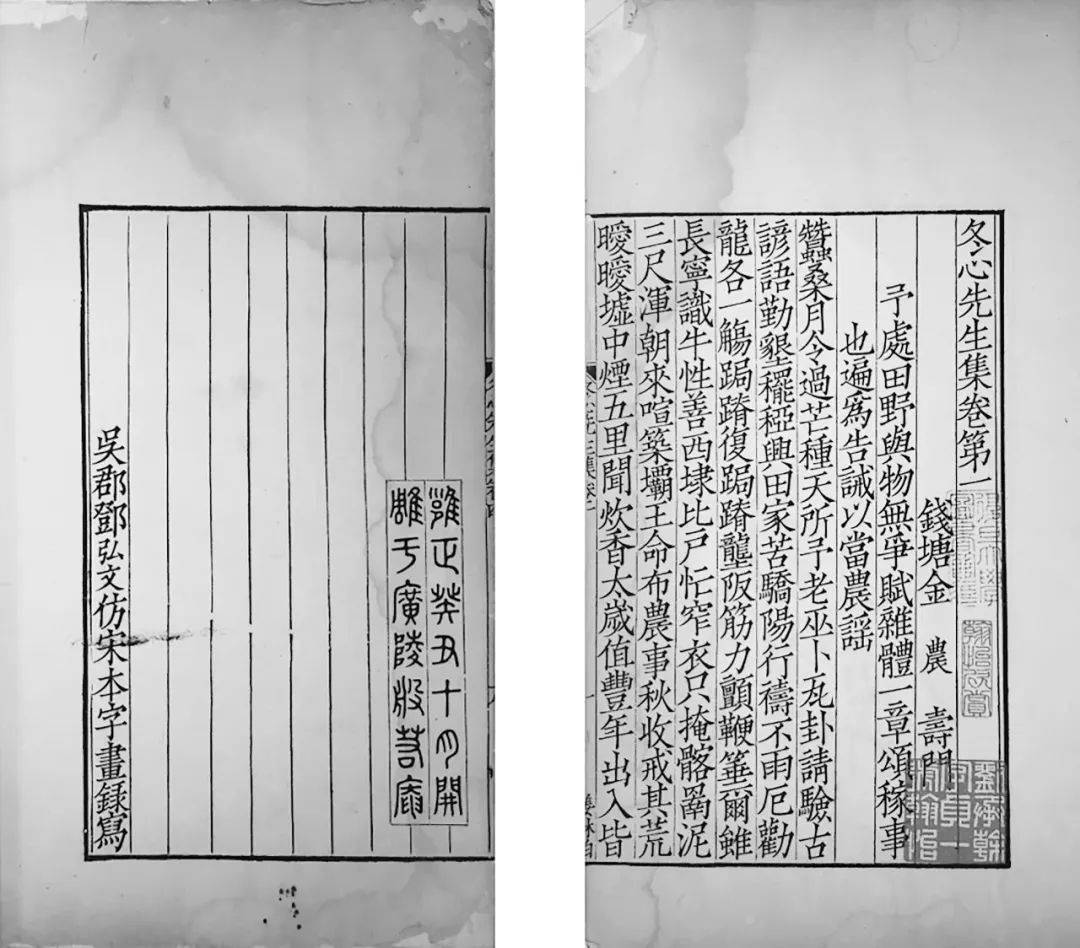 冬心先生集卷第一
錢塘金 農 壽門
予處田野與物無爭賦雜體一章頌稼事
也遍爲告誡以當農謡
蠶桑月令過芒種天所予老巫卜瓦卦請驗古
諺語勤墾䆉稏興田家苦驕陽行禱不雨厄勸
龍各一觴跼蹐復跼蹐壟阪筋力顫鞭箠爾雖
長寧識牛性善西埭比戶忙窄衣只掩髂罱泥
三尺渾朝來喧築壩王命布農事秋收戒其荒
曖曖墟中煙五里聞炊香太歲值豐年出入皆
雍正癸丑十月開
雕于廣陵般若庵
吳郡鄧弘文仿宋本字畫錄寫